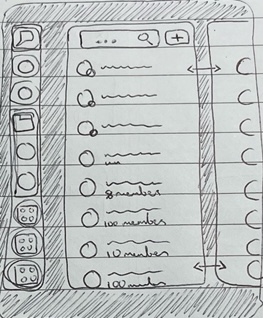 ...
8 members
100 members
10 members
100 members